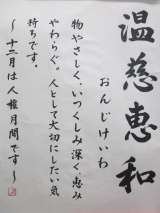 温慈恵和
おんじけいわ
物やさしく、いつくしみ深く、恵み
やわらぐ。人として大切にしたい気
持ちです。
〜十二月は人権月間です〜